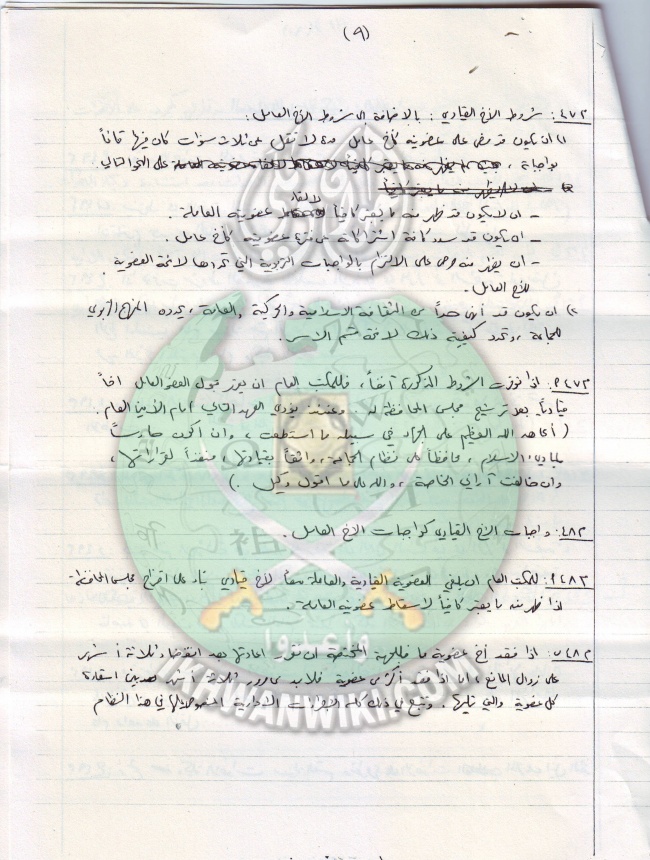 (٩)
م٤٧٢: شروط الأخ القيادي: بالاضافة الى شروط الأخ العامل:
١) ان يكون قد مضى على عضويته كأخ عامل مدة لا تقل عن ثلاث سنوات كان فيها قائماً
بواجباته، على النحو التالي:
- ان لا يكون قد ظهر منه ما يعتبر كافياً لالغاء عضويته العاملة.
- ان يكون قد سدد كافة اشتراكاته عن فترة عضويته كأخ عامل.
- ان يظهر منه حرص على الالتزام بالواجبات التربوية التي تحددها لائحة العضوية
للأخ العامل.
٢) ان يكون قد أنهى حداً من الثقافة الاسلامية والحركية والعامة، يحدده المنهج التربوي
للجماعة، وتحدد كيفية ذلك لائحة قسم الأسر.
اذا توفرت الشروط المذكورة آنفاً، فللمكتب العام ان يقرر قبول العضو العامل اخاً
قيادياً بعد ترشيح مجلس المحافظة له. وعندئذ يؤدي العهد التالي أمام الأمين العام.
(أعاهد الله العظيم على الجهاد في سبيله ما استطعت، وأن أكون حارساً
لمبادئ الاسلام، محافظاً على نظام الجماعة، واثقاً بقيادتها، منفذاً لقراراتها،
وان خالفت آرائي الخاصة، والله على ما اقول وكيل.)
م٤٨٢: واجبات الأخ القيادي كواجبات الأخ العامل.
للمكتب العام ان يلغي العضوية القيادية والعاملة معاً لأخ قيادي بناء على اقتراح مجلس المحافظة
اذا ظهر منه ما يعتبر كافياً لاسقاط عضويته العاملة.
اذا فقد أخ عضوية ما فللهيئة المختصة ان تقرر اعادتها بعد انقضاء ثلاثة أشهر
على زوال المانع، اما اذا فقد أكثر من عضوية فلابد من مرور ثلاثة أشهر بين استعادة
كل عضوية والتي تليها. وتتبع في ذلك كله الاجراءات الادارية المنصوص عليها في هذا النظام
وأعدوا
IKHWANWIKI.COM